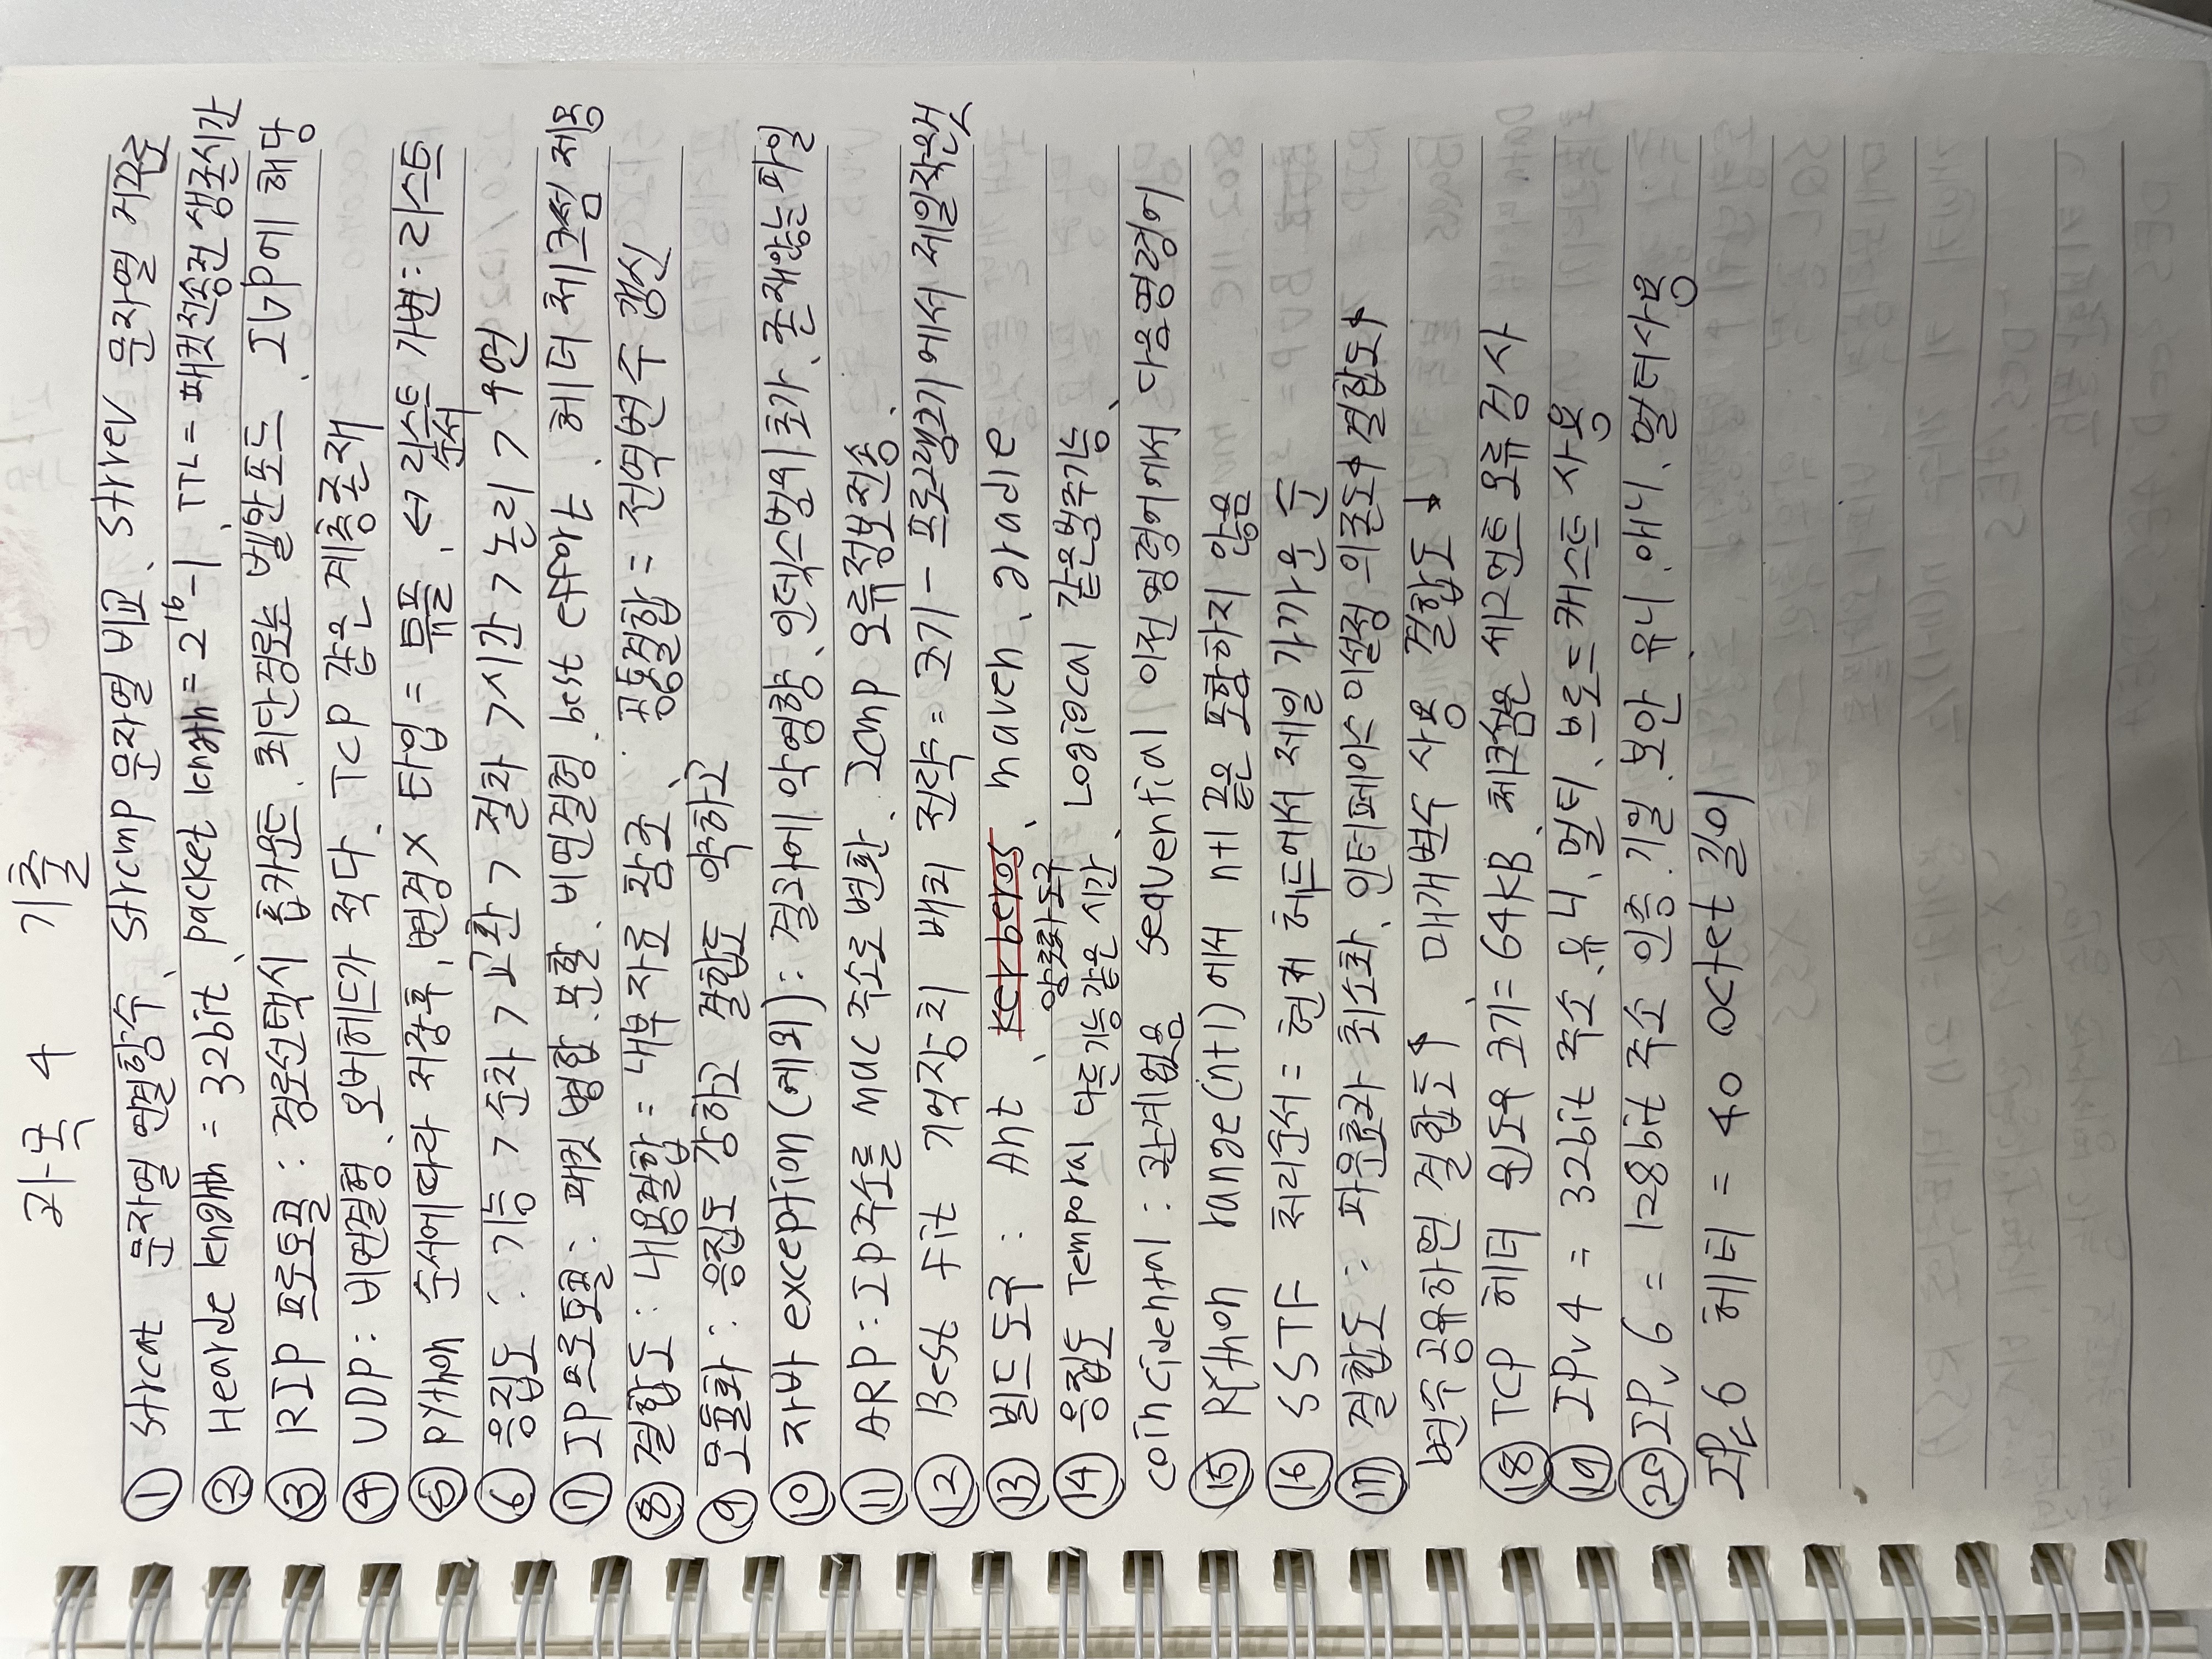 과목 4 기출
① strcat 문자열 연결함수, strcmp 문자열 비교, strrev 문자열 거꾸로
② Hearde length = 32bit, packet length = 2¹⁶-1, TTL = 패킷전송전 생존시간
③ RIP 프로토콜 : 경로선택시 홉카운트, 최단경로는 벨만포드, IGP에 해당
④ UDP : 비연결형, 오버헤드가 적다, TCP 같은 계층존재
⑤ python 순서에따라 저장후, 변경X 타입 = 튜플, <-> 리스트 가변 : 리스트
순서
⑥ 응집도 : 기능 > 순차 > 교환 > 절차 > 시간 > 논리 > 우연
⑦ IP프로토콜 : 패킷 병합, 분할, 비연결형, best effort, 헤더 체크섬 제공
⑧ 결합도 : 내용결합 = 내부자료 참조, 공통결합 = 전역변수 갱신
⑨ 모듈화 : 응집도 강하고 결합도 약하고
⑩ 자바 exception (예외) : 결과에 악영향, 인덱스범위 초가, 존재않는 파일
⑪ ARP : IP주소를 MAC주소로 변환, ICMP 오류정보전송,
⑫ Best Fit 기억장치 배치 전략 = 크기 - 프로그램크기에서 제일작은것
⑬ 빌드도구 : Ant, kerberos, maven, gradle
암호화도구
⑭ 응집도 Temporal 다른기능같은 시간, Logical 같은범주기능,
coincidental : 관계없음 sequential 이전 명령어에서 다음명령어
⑮ Python range(n+1)에서 n+1 끝은 포함하지 않음
⑯ SSTF 처리순서 = 현재 헤드에서 제일 가까운 순
⑰ 결합도 : 파운효과 최소화, 인터페이스 미설정 의존도↑ 결합도↑
변수공유하면 결합도↑, 매개변수 사용 결합도↓
⑱ TCP 헤더 윈도우 크기 = 64KB, 체크섬은 세그먼트 오류 검사
⑲ IPv4 = 32bit 주소, 유니, 멀티, 브로드캐스트 사용
⑳ IPv6 = 128bit 주소 인증, 기밀, 보안 유니, 애니, 멀티사용
헤더 = 40 octet 길이